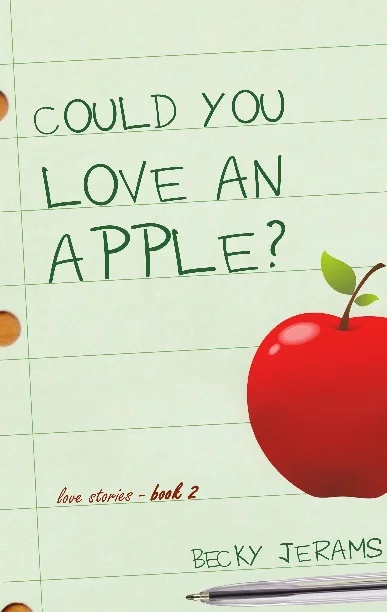 COULD YOU
LOVE AN
APPLE?
love stories - book 2
BECKY JERAMS